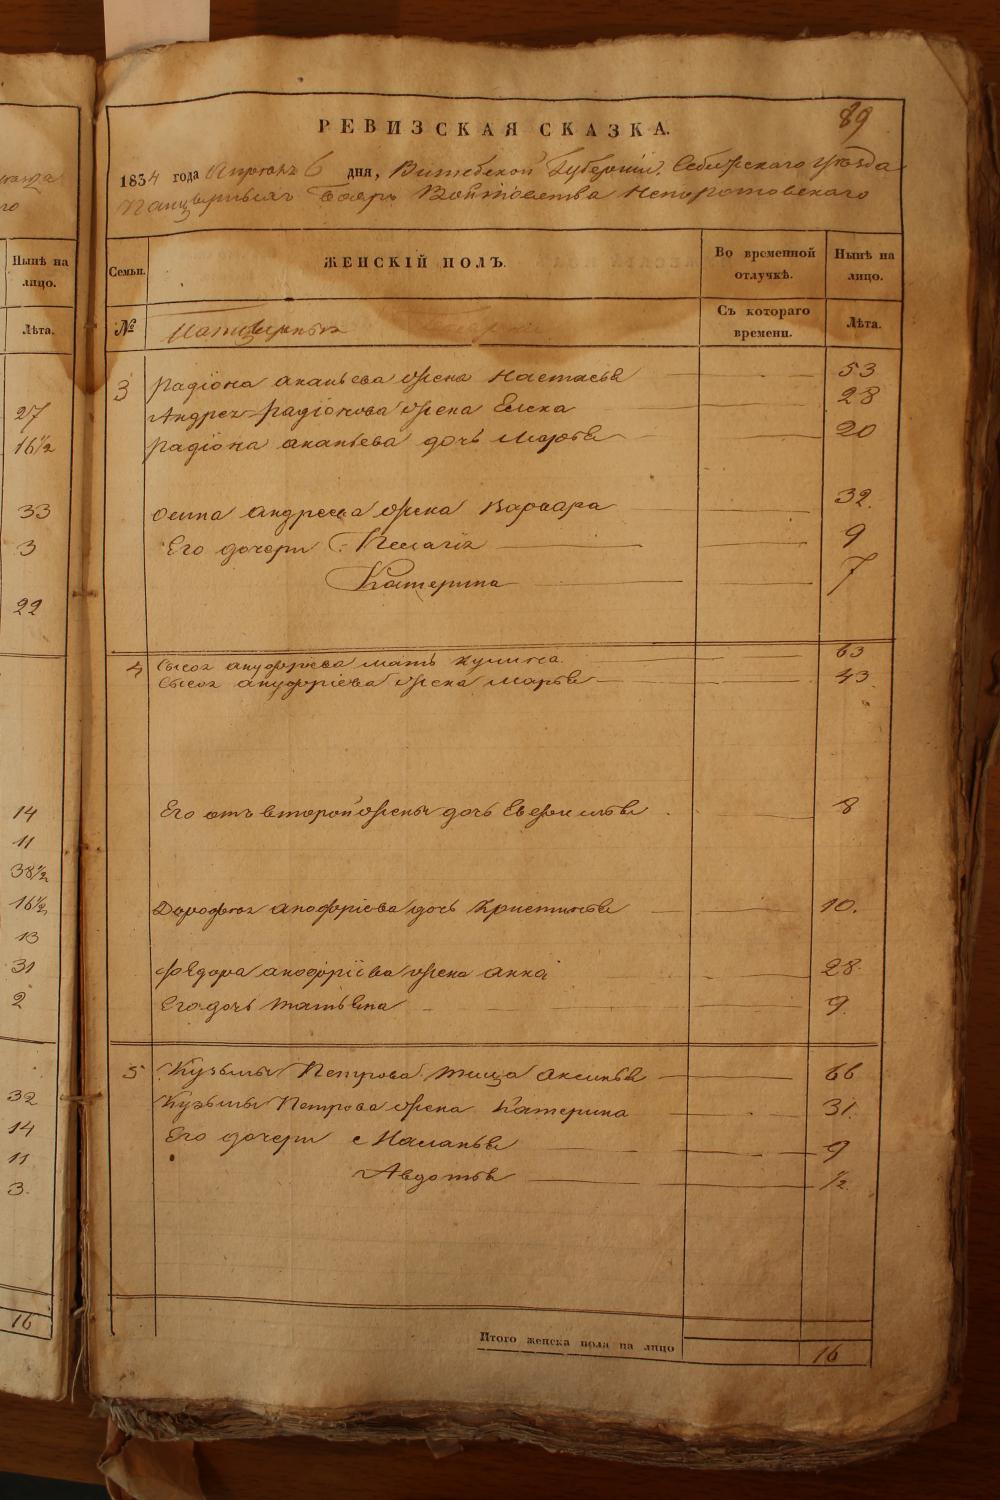 уезда
го
Нынѣ на
лицо.
Лѣта.
27
16½
33
3
22
14
11
38½
16½
13
31
2
32
14
11
3.
16
89
РЕВИЗСКАЯ СКАЗКА.
1834 года Апреля 6 дня, Витебской Губернии Себежскаго уезда
Панцерныхъ Бояръ Войтовства Непоротовскаго
Семьи.
ЖЕНСКІЙ ПОЛЪ.
Во временной отлучкѣ.
Нынѣ на лицо.
№
Панцерныхъ
Съ котораго времени.
Лѣта.
3 Радіона ананьева жена Настасья 53
Андрея радіонова жена Елена 28
Радіона ананьева дочь Марѳа 20
Осипа андреева жена Варвара 32.
Его дочери: Пелагія 9
Катерина 7
4 Сысоя ануфріева мать Кулина 63
Сысоя ануфріева жена Марья 43
Его отъ второй жены дочь 8
Дорофея анофріева дочь Христинья 10.
Федора анофріева жена Анна 28.
Его дочь Татьяна 9.
5 Кузьмы Петрова теща Аксинья 66
Кузьмы Петрова жена Катерина 31.
Его дочери Маланья 9
Авдотья ½.
Итого женска пола на лицо 16